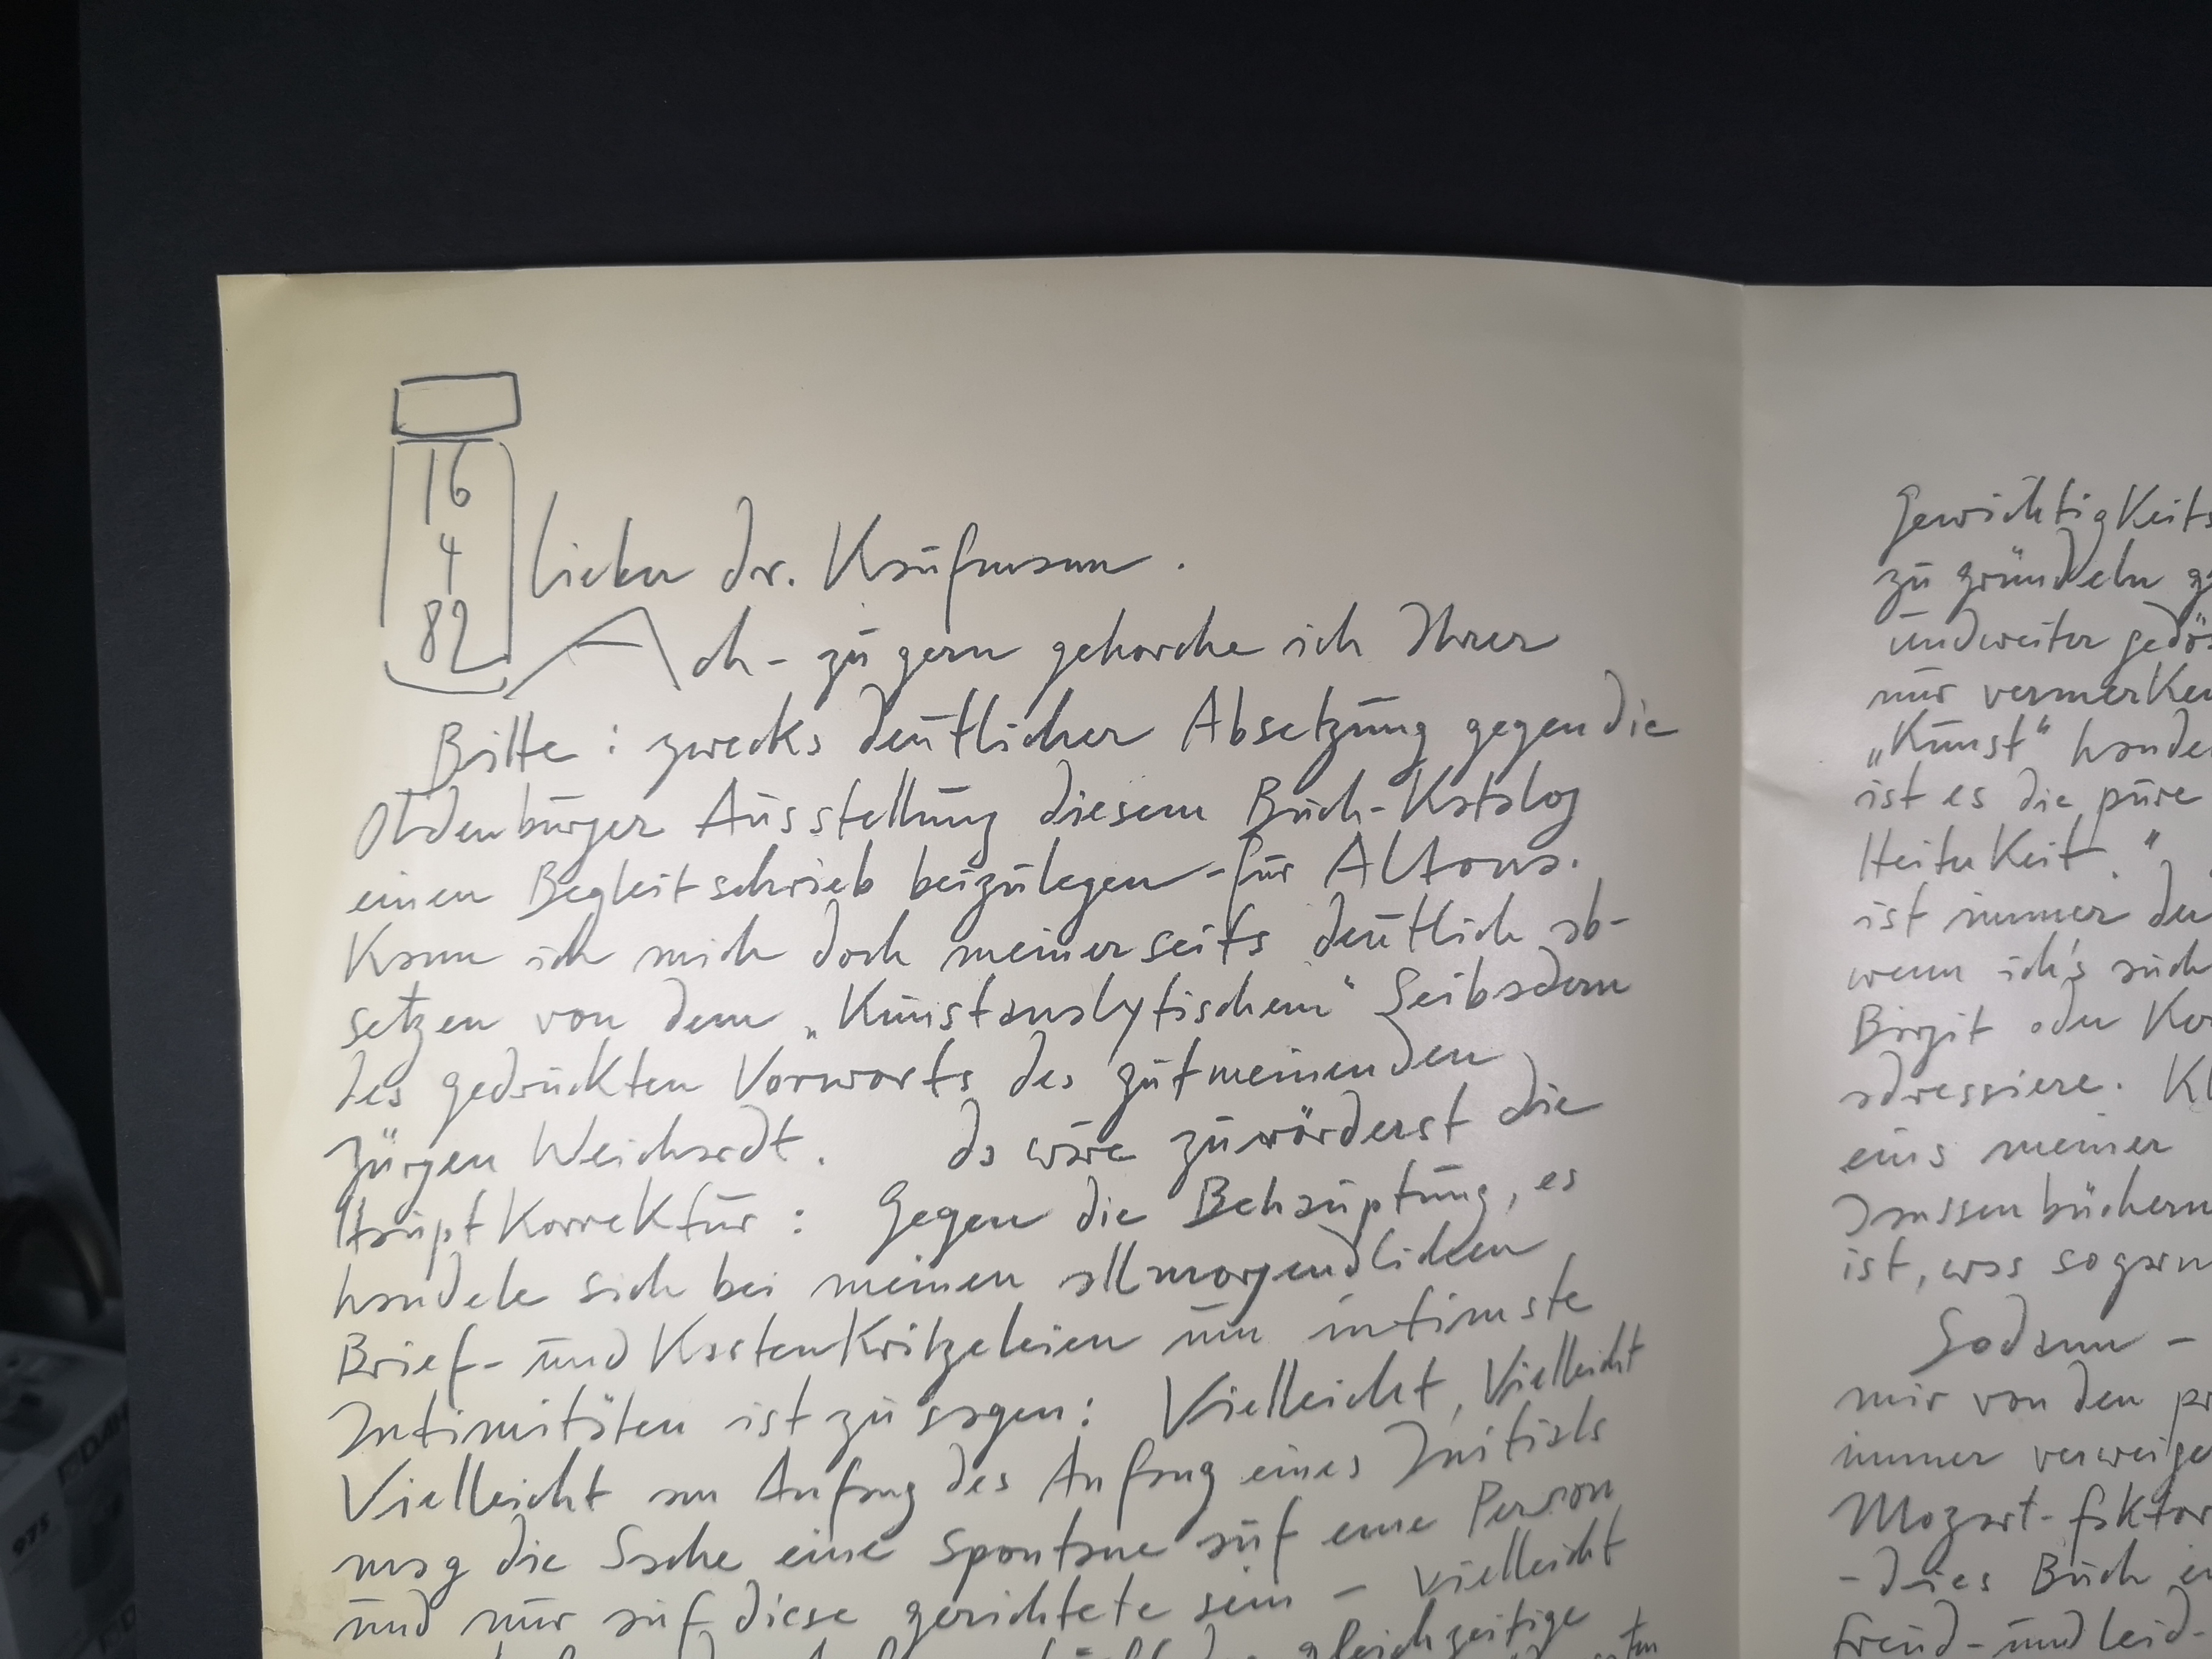 16
4
82
Lieber Dr. Kaufmann.
Ach – zu gern gehorche ich Ihrer
Bitte: zwecks deutlicher Absetzung gegen die
Oldenburger Ausstellung diesem Buch-Katalog
einen Begleitschrieb beizulegen – für Altona.
Kann ich mich doch meinerseits deutlich ab-
setzen von dem „Kunstanalytischem“ Seibadem
des gedruckten Vorworts des gutmeinenden
Jürgen Weichardt. Da wäre zuvörderst die
Hauptkorrektur: Gegen die Behauptung, es
handele sich bei meinen allmorgendlichen
Brief- und Kartenkritzeleien um intimste
Intimitäten ist zu sagen: Vielleicht, Vielleicht
Vielleicht am Anfang des Anfang eines Initials
mag die Sache eine spontane auf eine Person
und nur auf diese gerichtete sein – vielleicht
gleichzeitige
Gewichtigkeits
zu gründeln
undweiter
nur vermerken
„Kunst“ hande
ist es die pure
Heiterkeit.“
ist immer
wenn ich's auch
Birgit oder
adressiere.
eins meiner
Janssenbüchern
ist, was sogar
Sodann –
mir von den
immer verweige
Mozart-faktor
– dies Buch
freud- und leid-
975